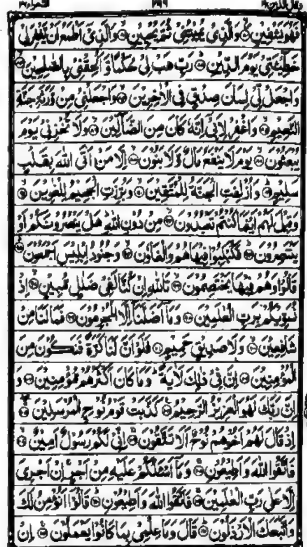 وقال الذين ١٩ الشعراء ٢٦
فَهُوَ يَشْفِيْنِ ۙ وَالَّذِيْ يُمِيْتُنِيْ ثُمَّ يُحْيِيْنِ ۙ وَالَّذِيْٓ اَطْمَعُ اَنْ يَّغْفِرَ لِيْ
خَطِيْٓئَتِيْ يَوْمَ الدِّيْنِ ؕ رَبِّ هَبْ لِيْ حُكْمًا وَّاَلْحِقْنِيْ بِالصّٰلِحِيْنَ ۙ
وَاجْعَلْ لِّيْ لِسَانَ صِدْقٍ فِي الْاٰخِرِيْنَ ۙ وَاجْعَلْنِيْ مِنْ وَّرَثَةِ جَنَّةِ
النَّعِيْمِ ۙ وَاغْفِرْ لِاَبِيْٓ اِنَّهٗ كَانَ مِنَ الضَّآلِّيْنَ ۙ وَلَا تُخْزِنِيْ يَوْمَ
يُبْعَثُوْنَ ۙ يَوْمَ لَا يَنْفَعُ مَالٌ وَّلَا بَنُوْنَ ۙ اِلَّا مَنْ اَتَى اللّٰهَ بِقَلْبٍ
سَلِيْمٍ ؕ وَاُزْلِفَتِ الْجَنَّةُ لِلْمُتَّقِيْنَ ۙ وَبُرِّزَتِ الْجَحِيْمُ لِلْغٰوِيْنَ ۙ وَ
قِيْلَ لَهُمْ اَيْنَمَا كُنْتُمْ تَعْبُدُوْنَ ۙ مِنْ دُوْنِ اللّٰهِ ؕ هَلْ يَنْصُرُوْنَكُمْ اَوْ
يَنْتَصِرُوْنَ ؕ فَكُبْكِبُوْا فِيْهَا هُمْ وَالْغَاوٗنَ ۙ وَجُنُوْدُ اِبْلِيْسَ اَجْمَعُوْنَ ؕ
قَالُوْا وَهُمْ فِيْهَا يَخْتَصِمُوْنَ ۙ تَاللّٰهِ اِنْ كُنَّا لَفِيْ ضَلٰلٍ مُّبِيْنٍ ۙ اِذْ
نُسَوِّيْكُمْ بِرَبِّ الْعٰلَمِيْنَ ۚ وَمَآ اَضَلَّنَآ اِلَّا الْمُجْرِمُوْنَ ۚ فَمَا لَنَا مِنْ
شَافِعِيْنَ ۙ وَلَا صَدِيْقٍ حَمِيْمٍ ۚ فَلَوْ اَنَّ لَنَا كَرَّةً فَنَكُوْنَ مِنَ
الْمُؤْمِنِيْنَ ۚ اِنَّ فِيْ ذٰلِكَ لَاٰيَةً ؕ وَمَا كَانَ اَكْثَرُهُمْ مُّؤْمِنِيْنَ ۚ وَ
اِنَّ رَبَّكَ لَهُوَ الْعَزِيْزُ الرَّحِيْمُ ۧ كَذَّبَتْ قَوْمُ نُوْحِ ۨالْمُرْسَلِيْنَ ۚ
اِذْ قَالَ لَهُمْ اَخُوْهُمْ نُوْحٌ اَلَا تَتَّقُوْنَ ۚ اِنِّيْ لَكُمْ رَسُوْلٌ اَمِيْنٌ ۙ
فَاتَّقُوا اللّٰهَ وَاَطِيْعُوْنِ ۚ وَمَآ اَسْـَٔلُكُمْ عَلَيْهِ مِنْ اَجْرٍ ۚ اِنْ اَجْرِيَ
اِلَّا عَلٰى رَبِّ الْعٰلَمِيْنَ ۚ فَاتَّقُوا اللّٰهَ وَاَطِيْعُوْنِ ؕ قَالُوْٓا اَنُؤْمِنُ لَكَ
وَاتَّبَعَكَ الْاَرْذَلُوْنَ ؕ قَالَ وَمَا عِلْمِيْ بِمَا كَانُوْا يَعْمَلُوْنَ ۚ اِنْ